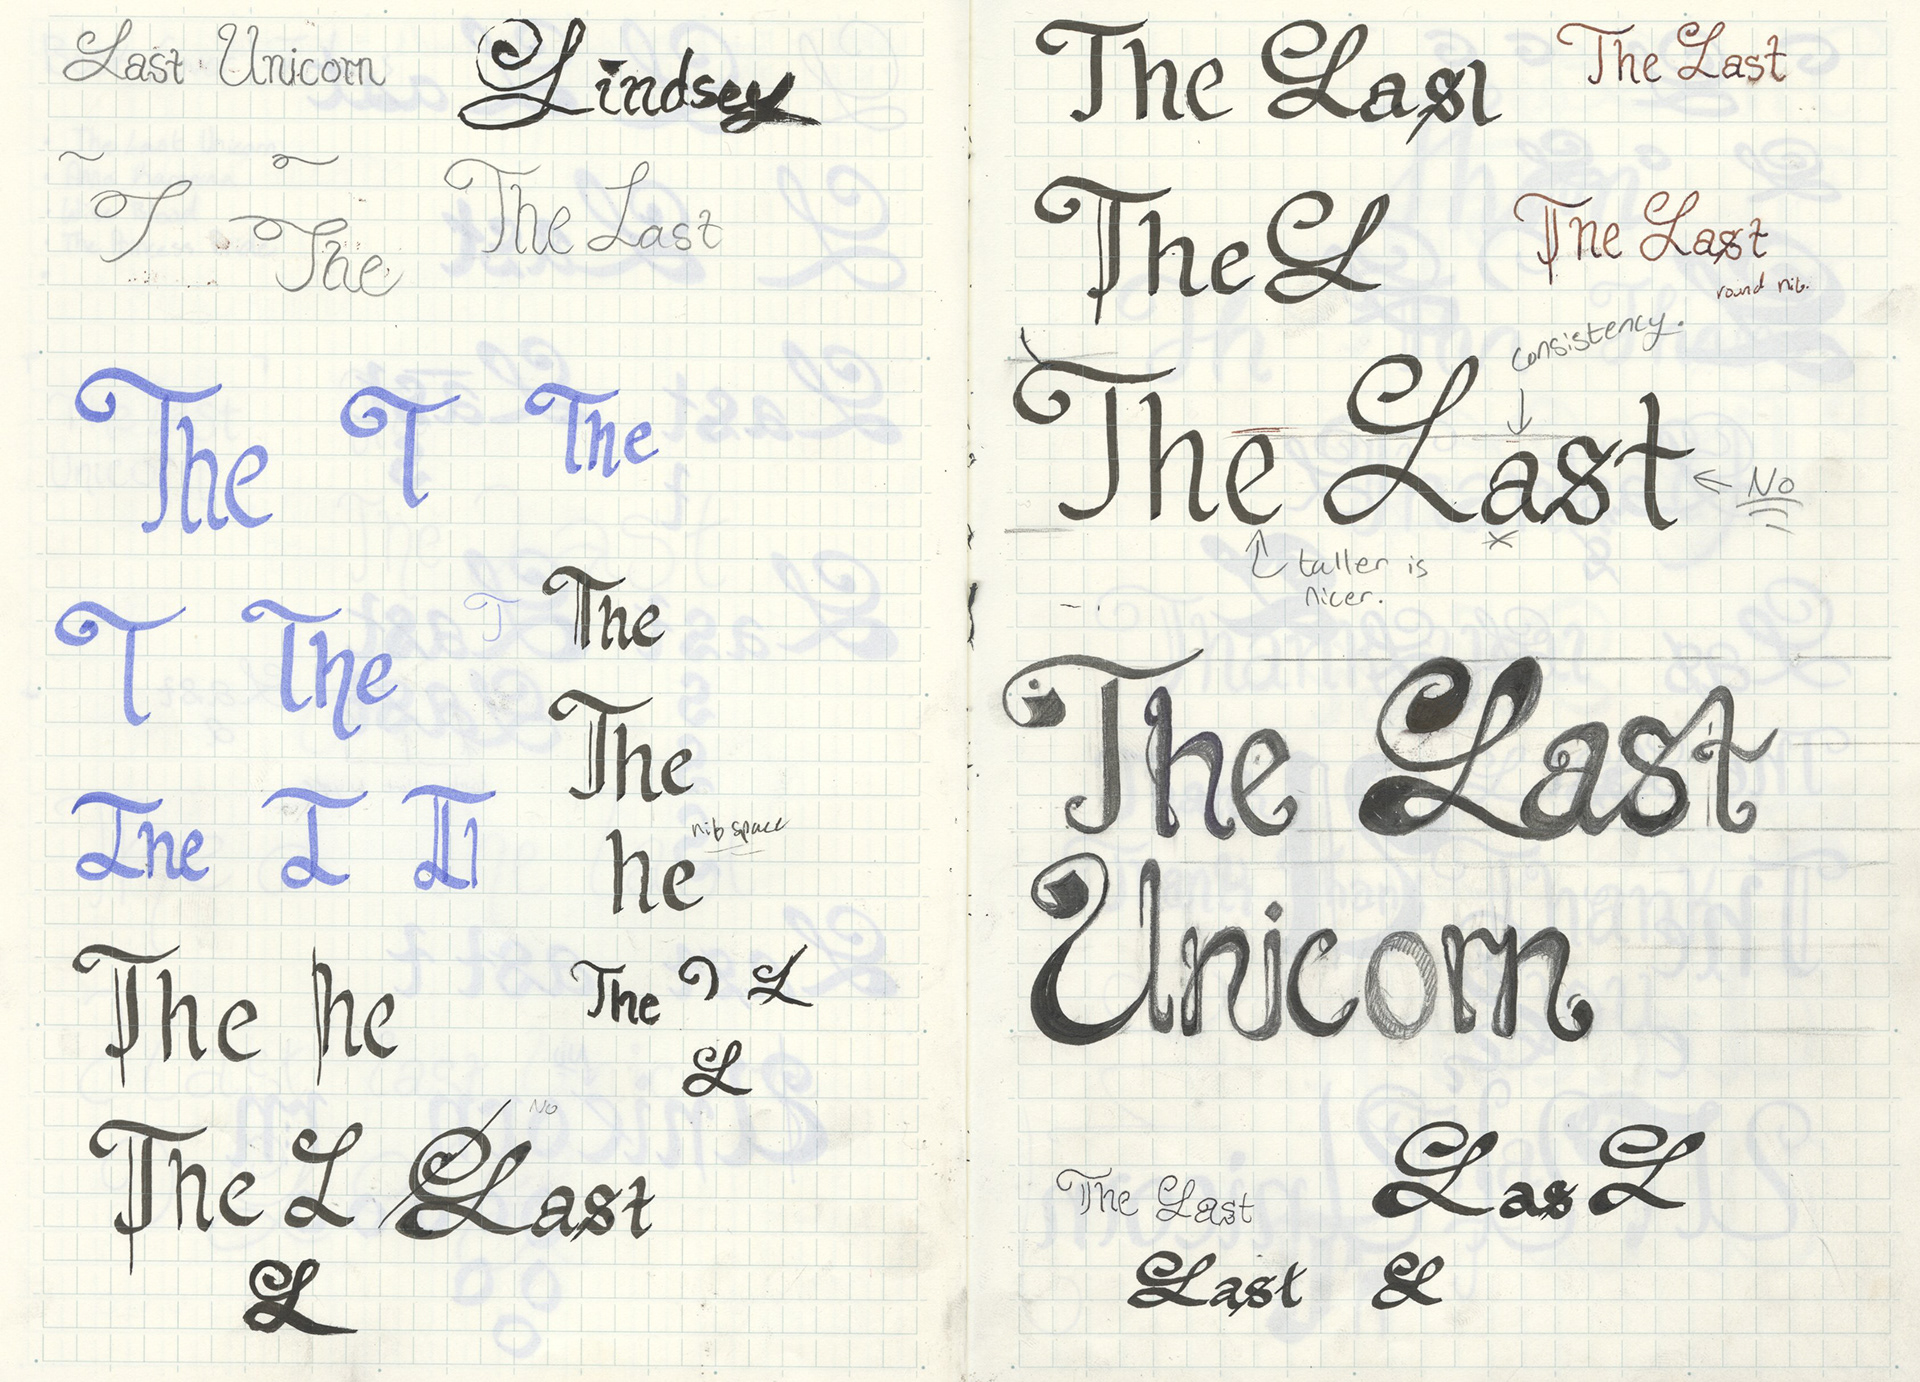 Last Unicorn
Lindsey
T
The
The Last
The T The
T The T
The
The
nib space
he
The T T
The he
The L
L
The L Last
No
L
The Last
The Last
The L
The Last
round nib.
consistency.
The Last
No
taller is
nicer.
The Last
Unicorn
The Last
Las L
Last L